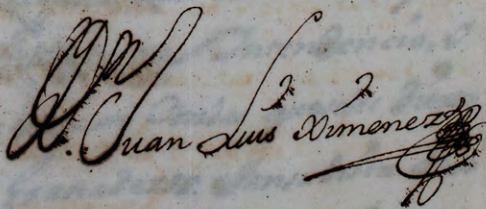 Dn. Juan Luis Ximenez